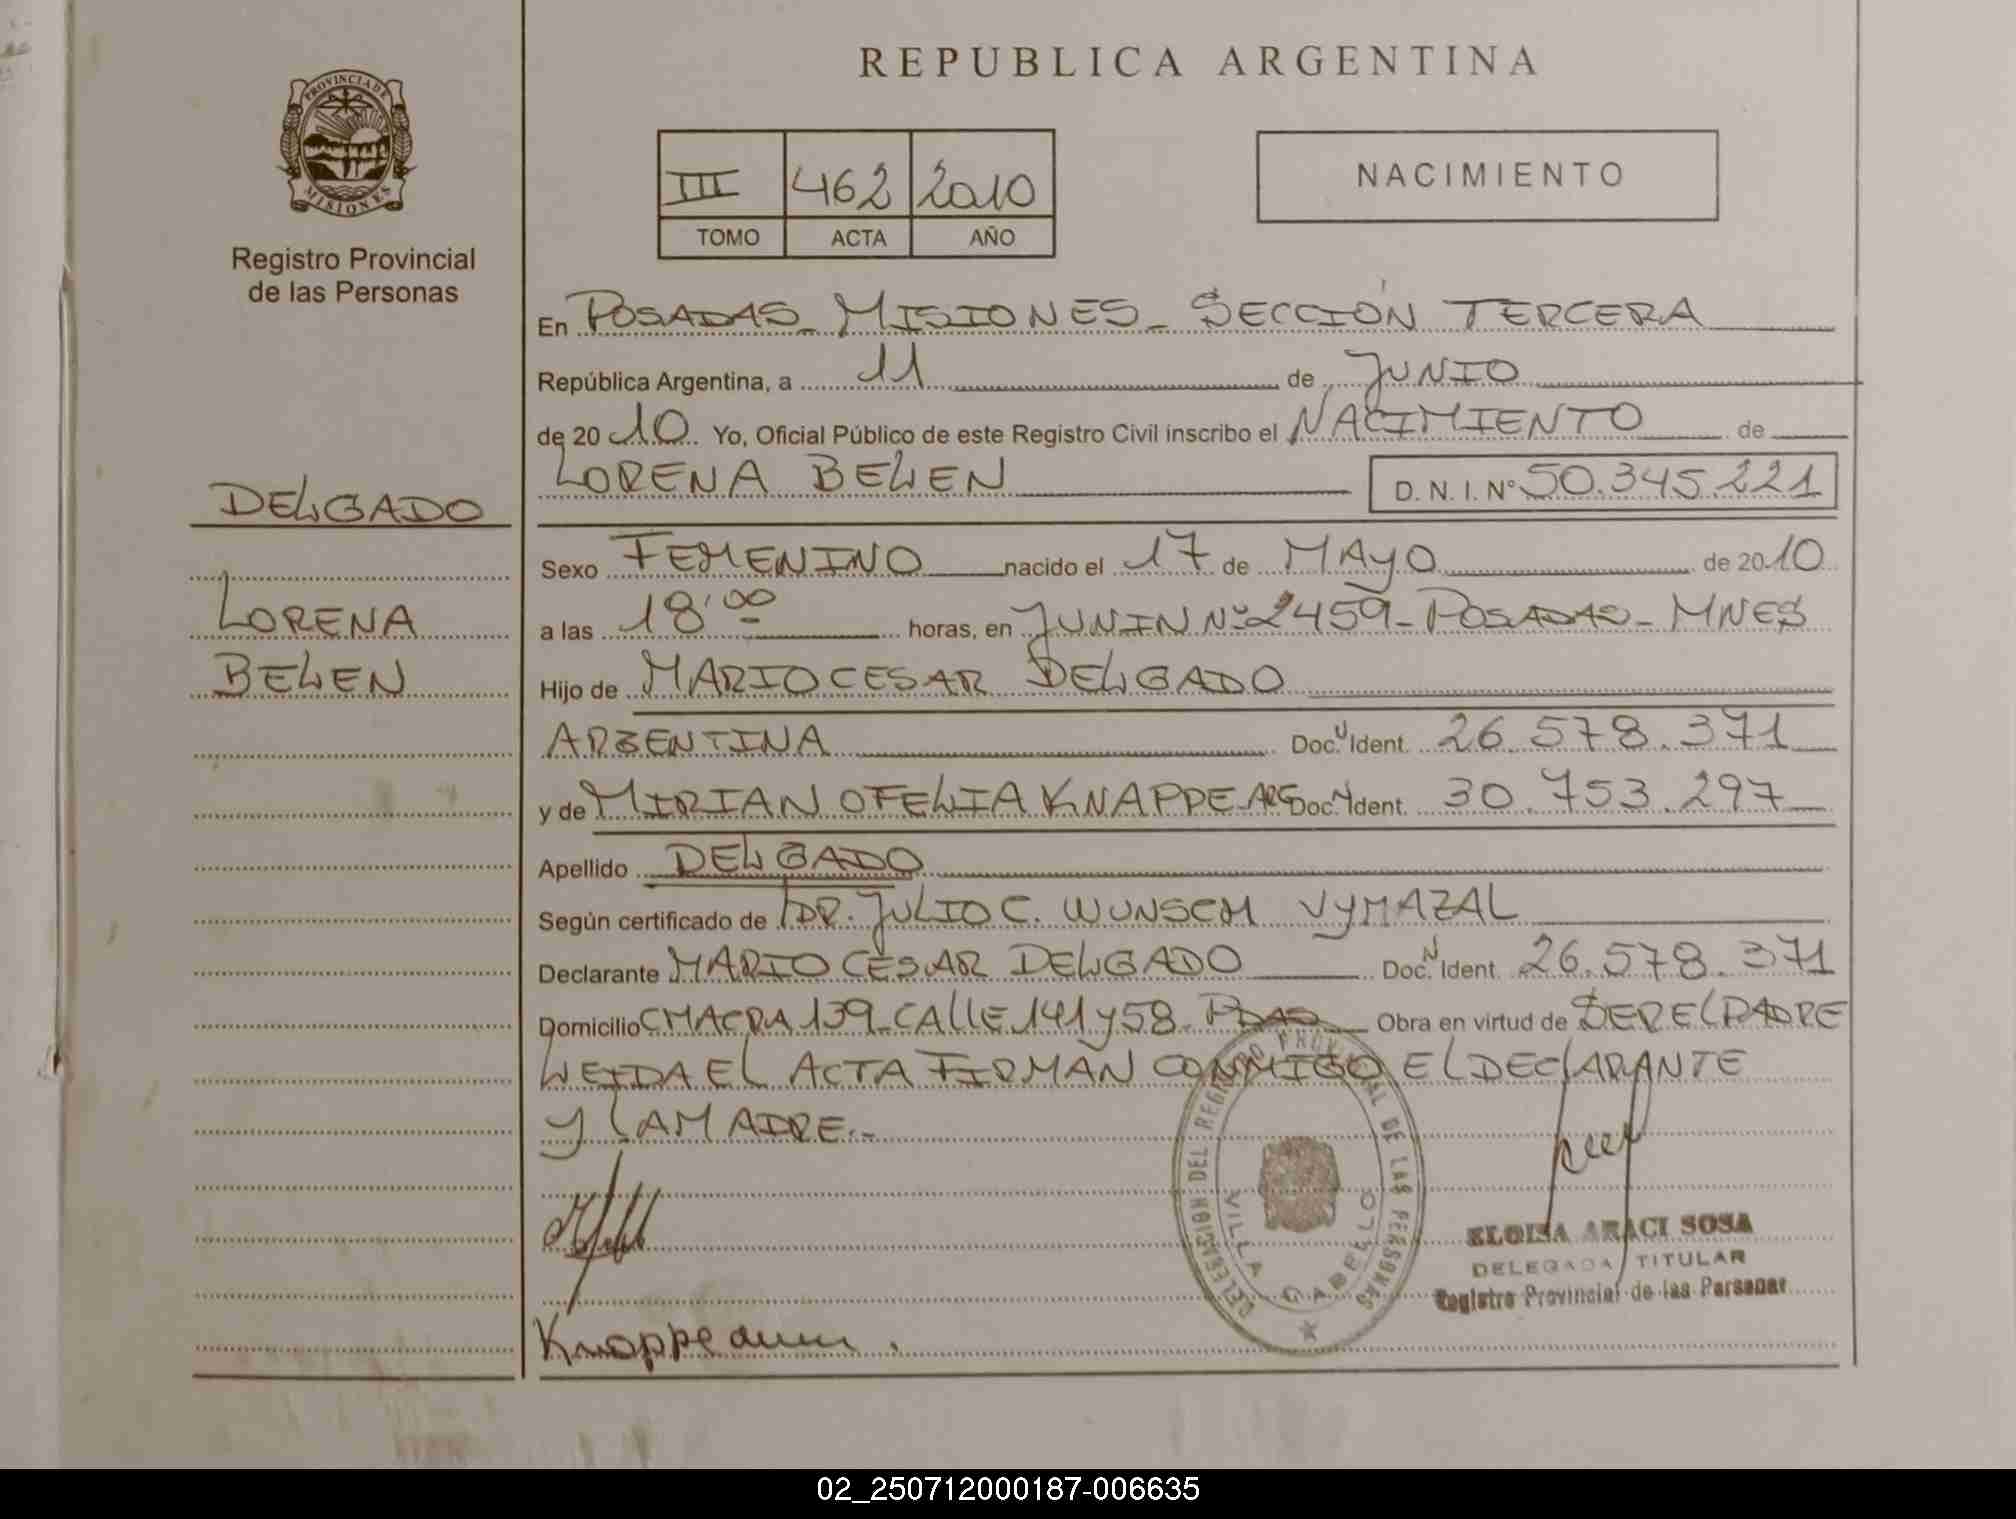 REPUBLICA ARGENTINA
PROVINCIA DE
MISIONES
Registro Provincial
de las Personas
III 462 2010
TOMO ACTA AÑO
NACIMIENTO
En POSADAS_ MISIONES_ SECCIÓN TERCERA
República Argentina, a 11 de JUNIO
de 2010 Yo, Oficial Público de este Registro Civil inscribo el NACIMIENTO de
LORENA BELEN D. N. I. Nº 50.345.221
DELGADO
LORENA
BELEN
Sexo FEMENINO nacido el 17 de MAYO de 2010
a las 18:00 horas, en JUNIN Nº 2459_ POSADAS_ MNES
Hijo de MARIO CESAR DELGADO
ARGENTINA Doc. N Ident. 26.578.371
y de MIRIAN OFELIA KNAPPE ARG Doc. N Ident. 30.753.297
Apellido DELGADO
Según certificado de DR. JULIO C. WUNSCH VYMAZAL
Declarante MARIO CESAR DELGADO Doc. N Ident. 26.578.371
Domicilio CHACRA 139_CALLE 141 y 58_ PDAS Obra en virtud de SER EL PADRE
LEIDA EL ACTA FIRMAN CONMIGO EL DECLARANTE
Y LA MADRE._
DELEGACION DEL REGISTRO PROVINCIAL DE LAS PERSONAS
VILLA CABELLO
ELOISA ARACI SOSA
DELEGADA TITULAR
Registro Provincial de las Personas
Knappe
02_250712000187-006635